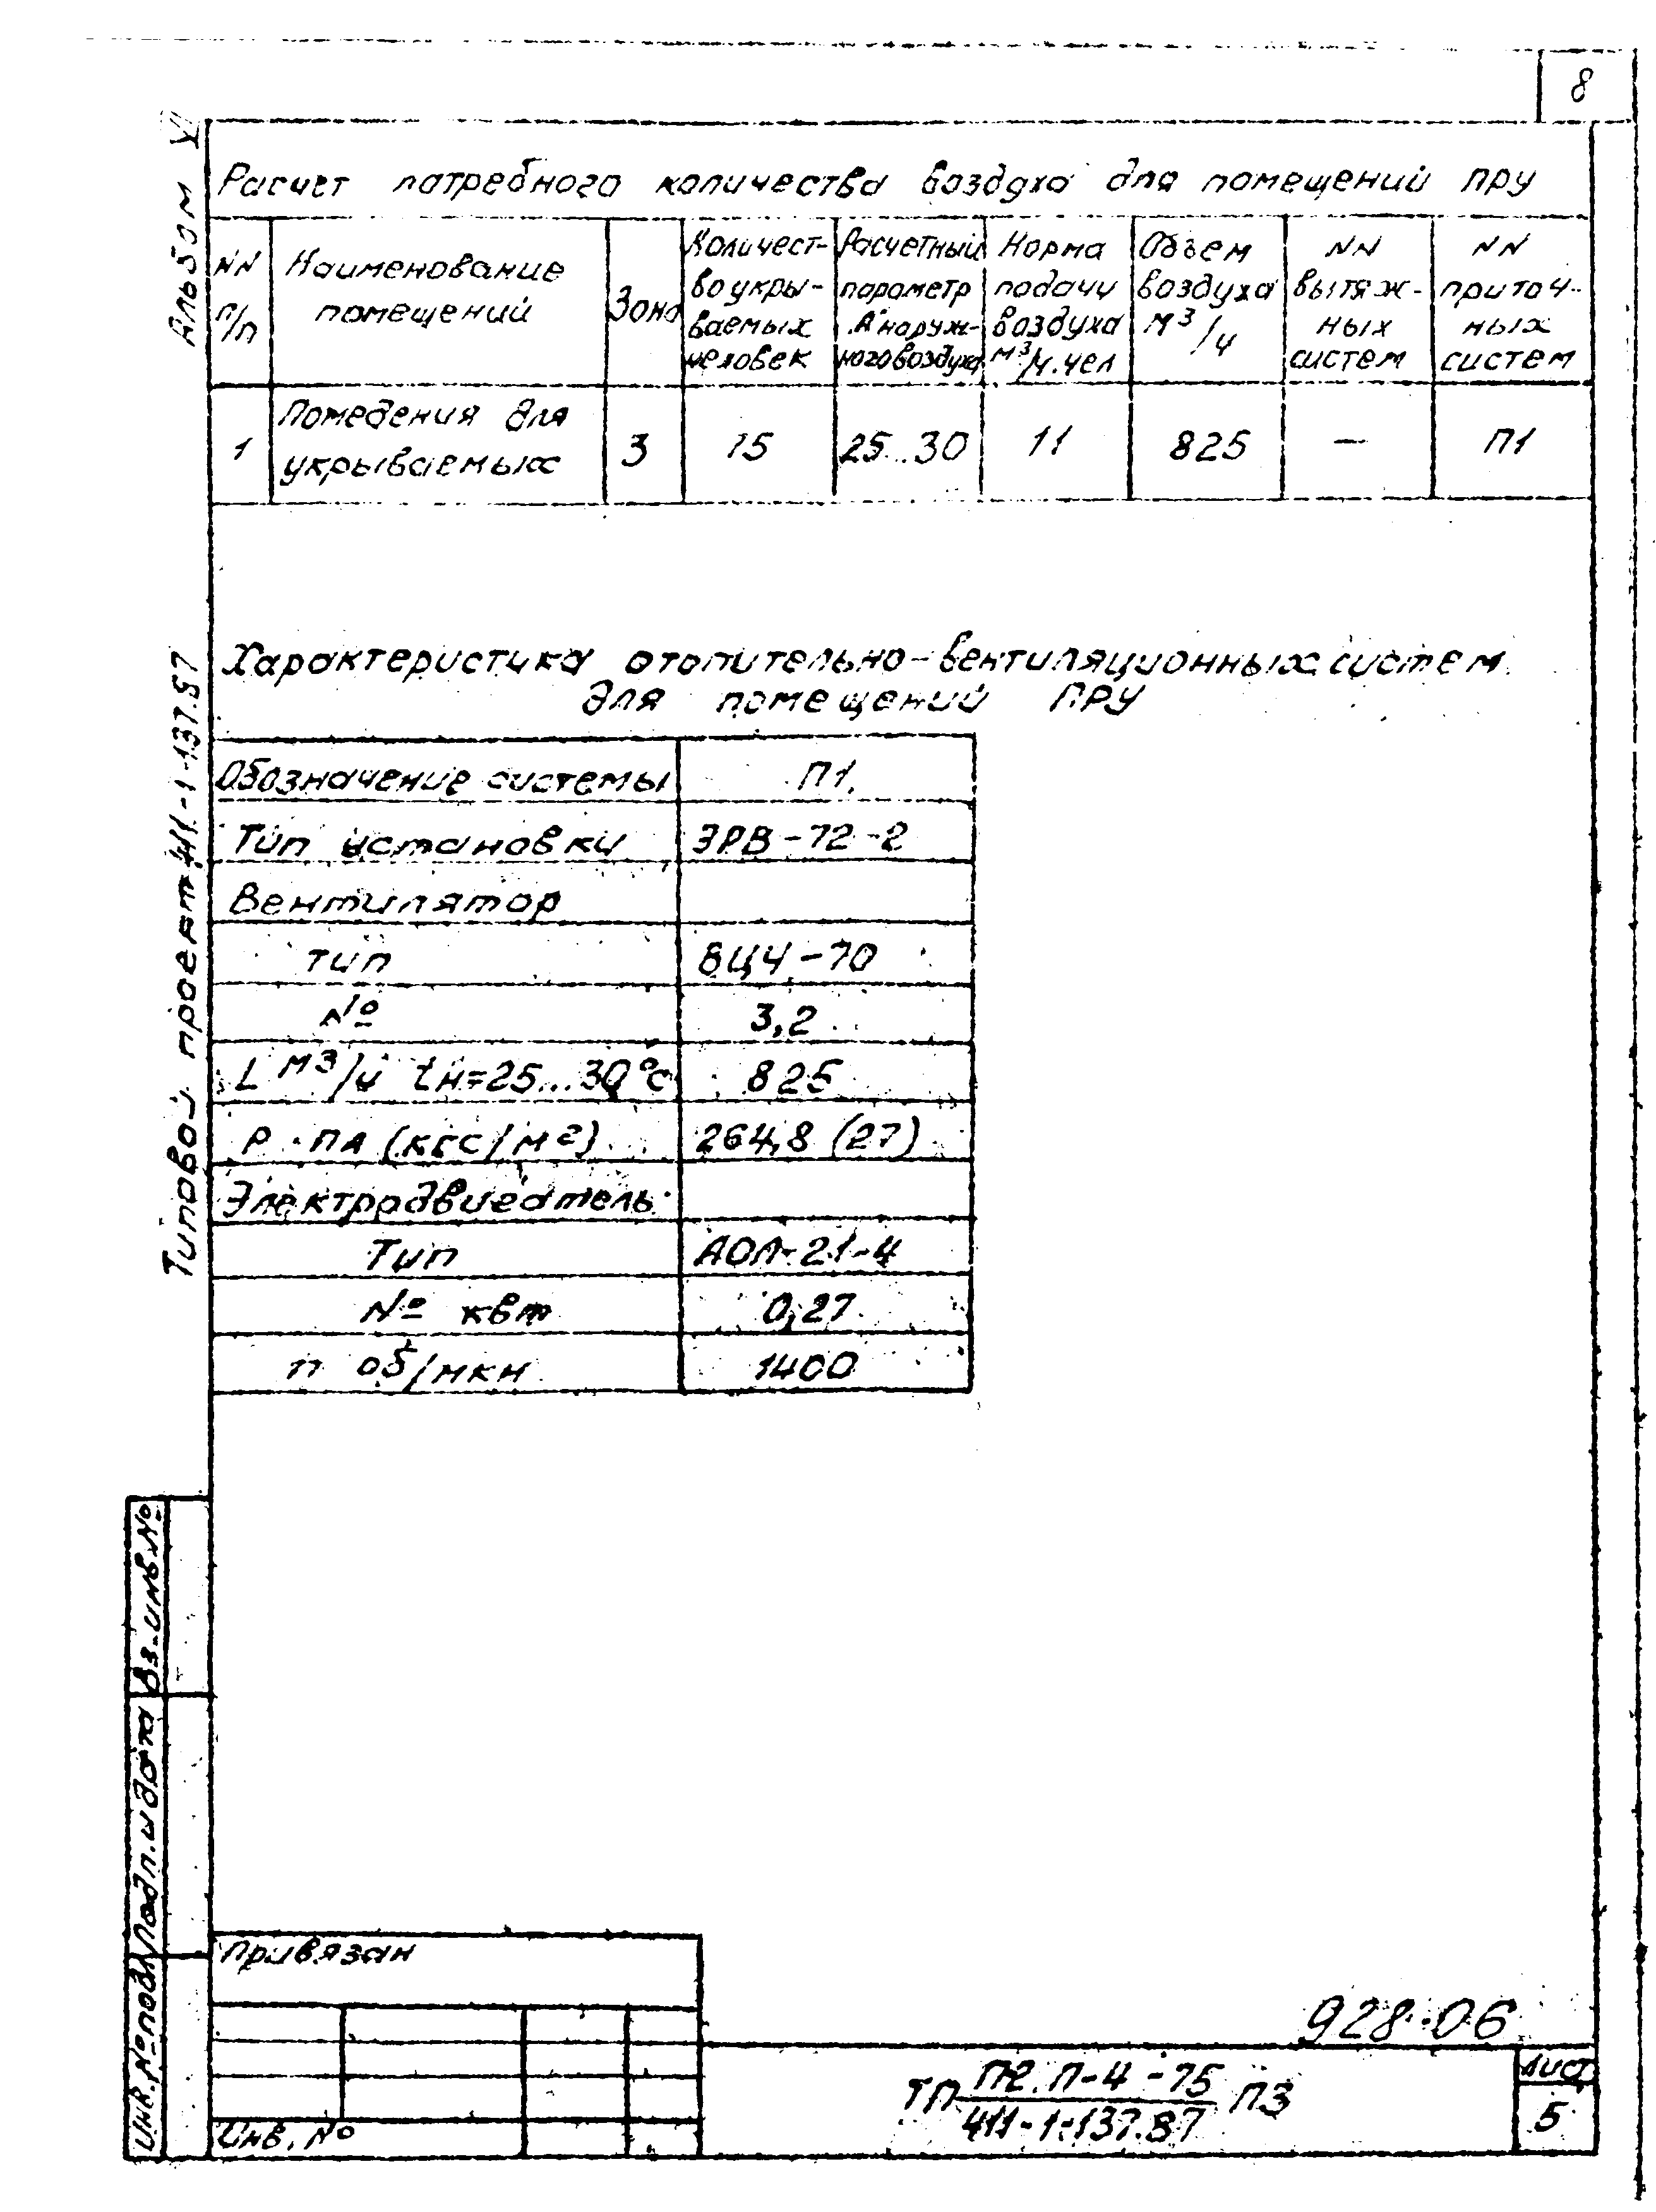 8
Альбом VI
Расчет потребного количества воздуха для помещений ПРУ
NN п/п
Наименование помещений
Зона
Количест-
во укры-
ваемых
человек
Расчетный
параметр
"А" наруж-
ного воздуха
Норма
подачи
воздуха
м³/ч.чел
Объем
воздуха
м³/ч
NN
вытяж-
ных
систем
NN
приточ-
ных
систем
1
Помедения для
укрываемых
3
75
25...30
11
825
—
П1
Типовой проект 411-1-137.87
Характеристика отопительно-вентиляционных систем
для помещений ПРУ
Обозначение системы П1.
Тип установки ЭРВ-72-2
Вентилятор
тип ВЦ4-70
№ 3,2
L м³/ч tн=25...30°С 825
Р ПА (кгс/м²) 264,8 (27)
Электродвигатель
Тип АОЛ-21-4
№ квт 0,27
п об/мин 1400
Вз. инв. №
Подп. и дата
Инв. № подл
Привязан
Инв. №
928-06
ТП П2.П-4-75 ПЗ
411-1-137.87
Лист
5